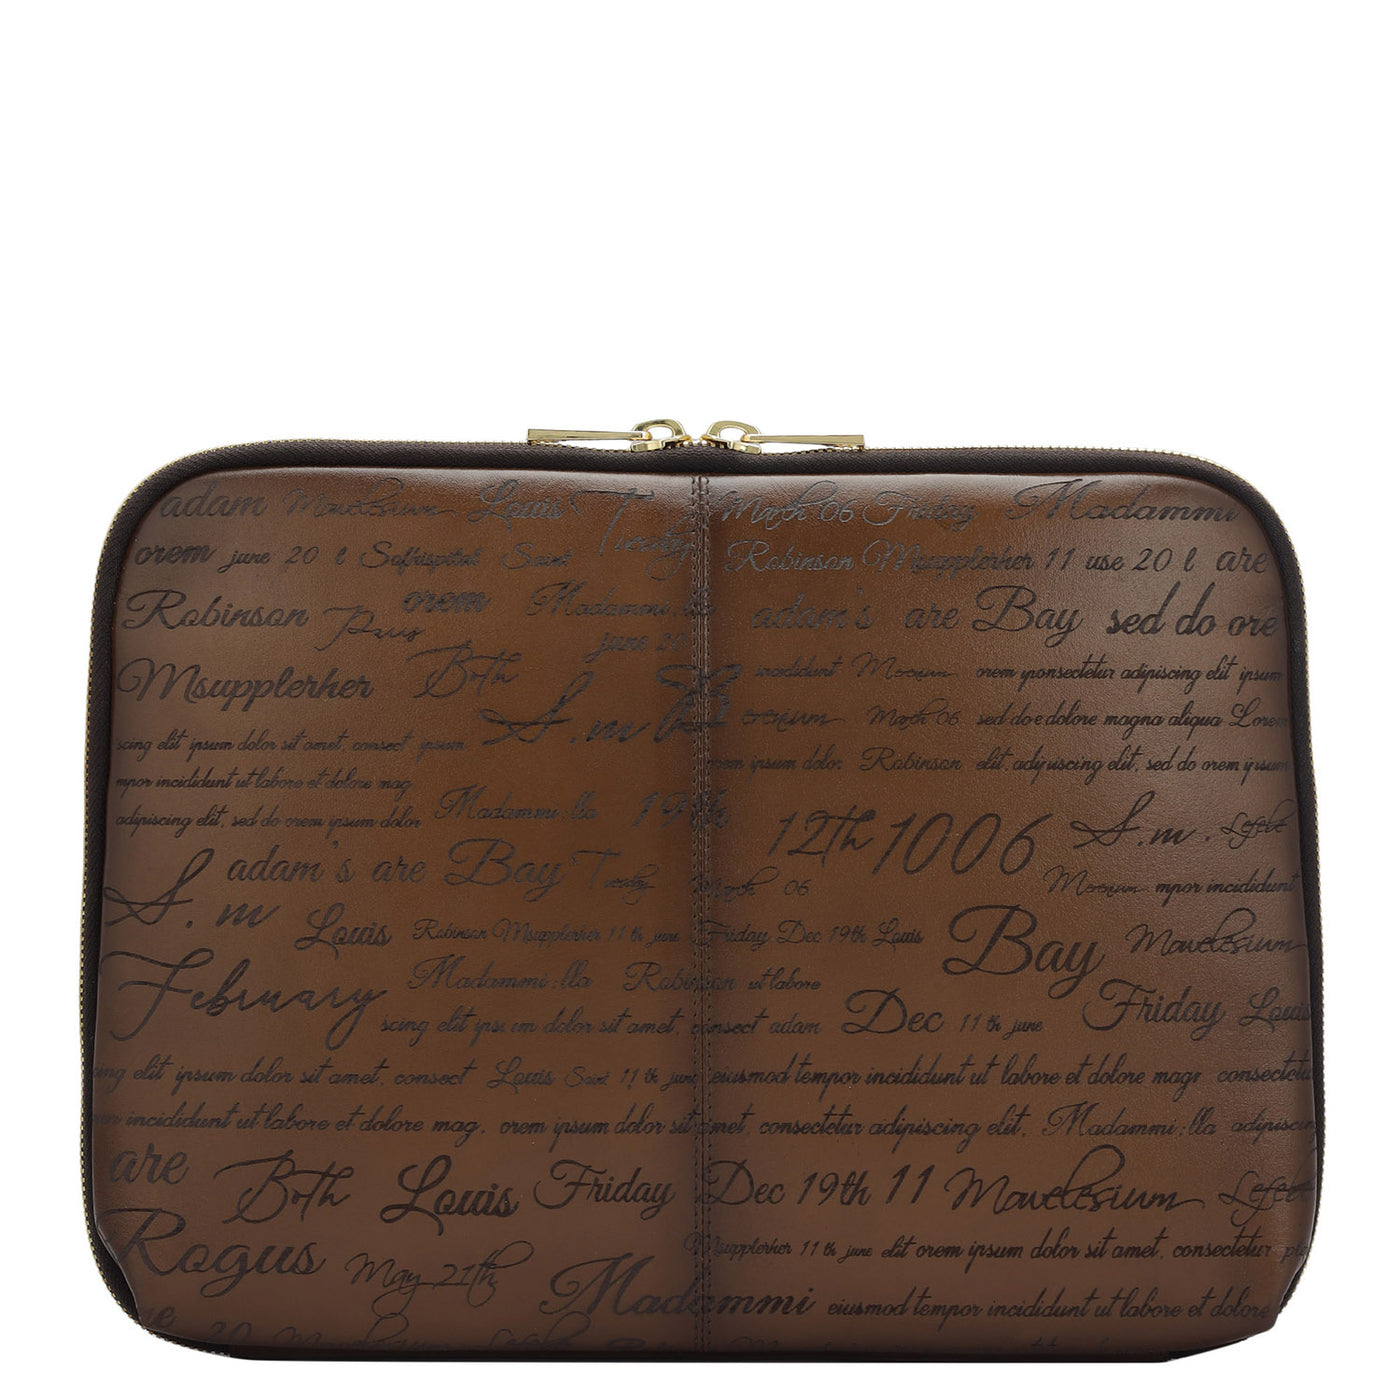 adam Mavelesium Louis Tuesday March 06 Friday Madammi
orem june 20 l Safhispital Saint Robinson Msupplerher 11 use 20 l are
Robinson orem Madammi:lla adam's are Bay sed do ore
june 20
Msupplerher Both incididunt orem yponsectetur adipiscing elit ipsum
S.m March 06 sed do e dolore magna aliqua Lorem
scing elit ipsum dolor sit amet, consect ipsum
orem ipsum dolor Robinson elit, adipiscing elit, sed do orem ipsum
mpor incididunt ut labore et dolore mag
adipiscing elit, sed do orem ipsum dolor Madammi:lla 19th 12th 1006 S.m. Lefeve
adam's are Bay Tuesday March 06 mpor incididunt
S.m Louis Robinson Msupplerher 11 th june Friday Dec 19th Louis Bay Mavelesium
February Madammi:lla Robinson ut labore
scing elit ipsum dolor sit amet, consect adam Dec 11 th june Friday Louis
ing elit ipsum dolor sit amet, consect Louis Saint 11 th june eiusmod tempor incididunt ut labore et dolore magr consectetu
incididunt ut labore et dolore mag, orem ipsum dolor sit amet, consectetur adipiscing elit, Madammi:lla adipiscin
are Both Louis Friday Dec 19th 11 Mavelesium Lefeve
Rogus May 21th Msupplerher 11 th june elit orem ipsum dolor sit amet, consectetur
Madammi eiusmod tempor incididunt ut labore et dolore
20 Louis